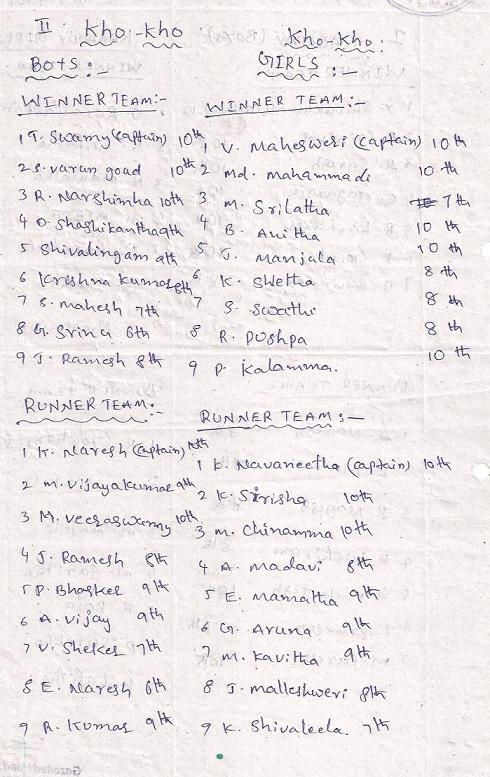 II Kho-kho
BOYS:-
WINNER TEAM:-
1 T. Swamy (captain) 10th
2 S. varun goad 10th
3 R. Narshimha 10th
4 D. Shashikantha 9th
5 Shivalingam 9th
6 Krishna Kumar 8th
7 S. mahesh 7th
8 G. Srinu 6th
9 J. Ramesh 8th
RUNNER TEAM:-
1 K. Naresh (captain) 10th
2 M. Vijayakumar 9th
3 M. Veeraswamy 10th
4 J. Ramesh 8th
5 P. Bhasker 9th
6 A. Vijay 9th
7 V. Sheker 7th
8 E. Naresh 6th
9 R. Kumar 9th
Kho-Kho:
GIRLS:-
WINNER TEAM:-
1 V. Mahesweri (captain) 10th
2 Md. mahammadi 10th
3 M. Srilatha 7th
4 B. Anitha 10th
5 G. Manjala 10th
6 K. Swetha 8th
7 S. Swathi 8th
8 R. Pushpa 8th
9 P. Kalamma. 10th
RUNNER TEAM:-
1 K. Navaneetha (captain) 10th
2 K. Sirisha 10th
3 M. Chinamma 10th
4 A. Madavi 8th
5 E. Mamatha 9th
6 G. Aruna 9th
7 M. Kavitha 9th
8 J. Malleshweri 8th
9 K. Shivaleela. 7th